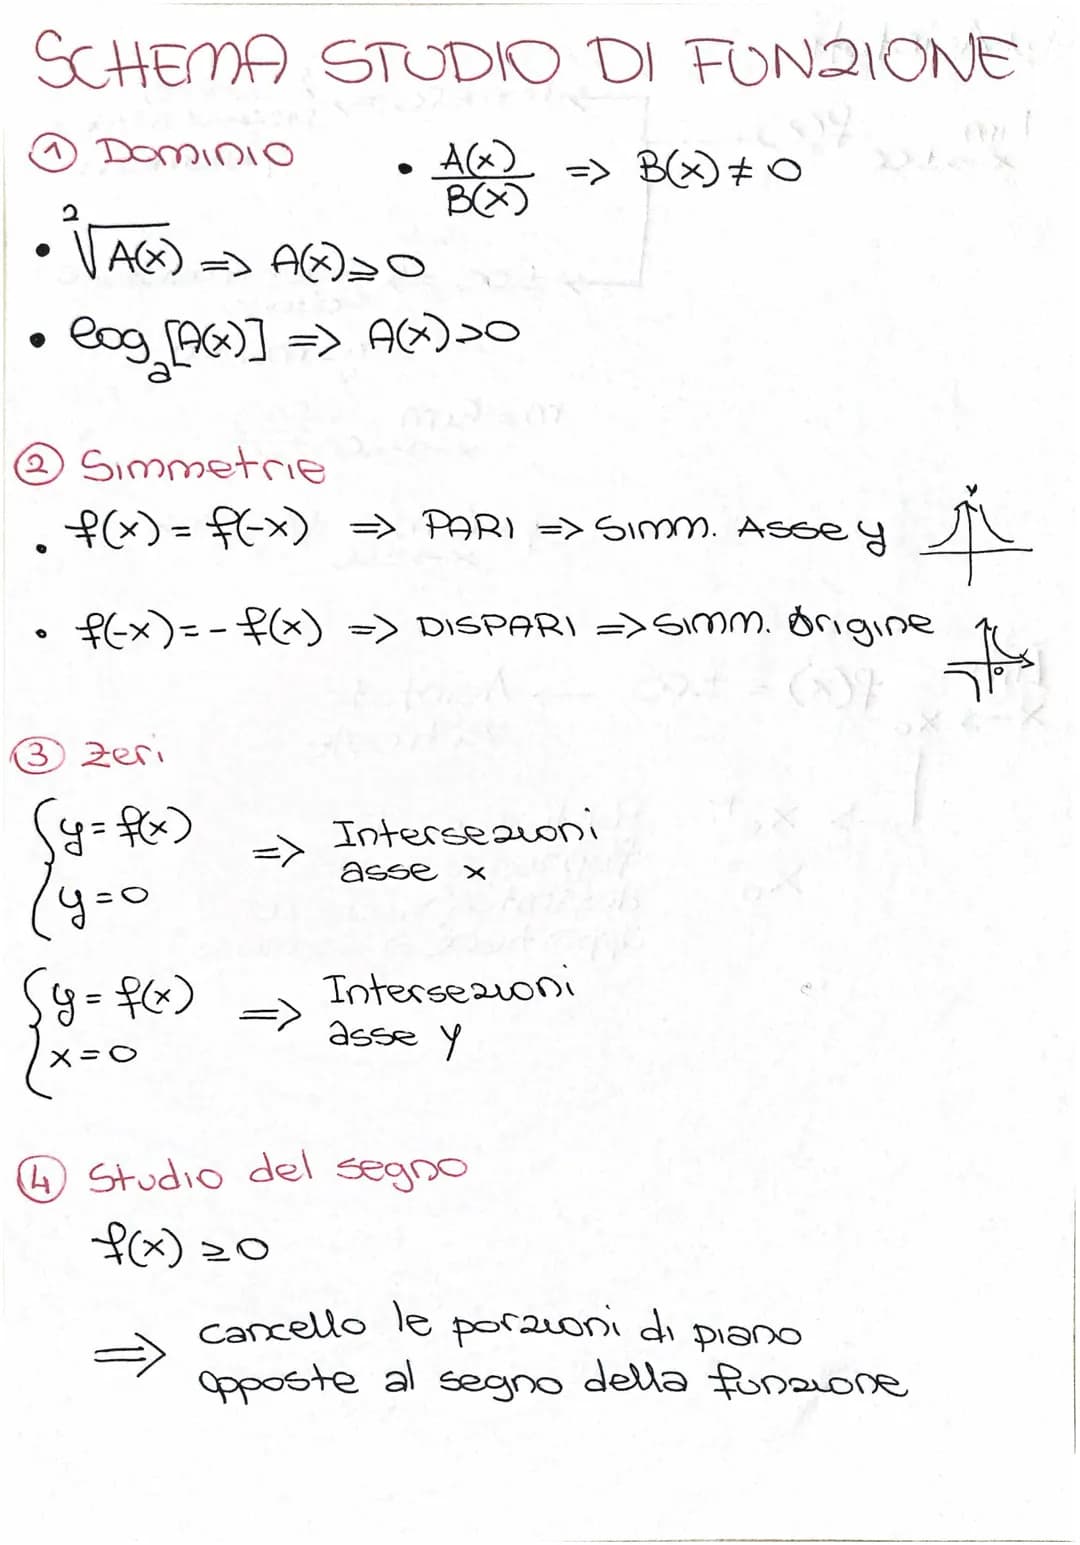 SCHEMA STUDIO DI FUNZIONE
① Dominio
• A(x)/B(x) => B(x) ≠ 0
• ²√A(x) => A(x) ⩾ 0
• logₐ[A(x)] => A(x)>0
② Simmetrie
• f(x) = f(-x) => PARI => Simm. Asse y
y
• f(-x) = - f(x) => DISPARI => Simm. Origine
o
③ Zeri
{y = f(x)
{y = 0
=> Intersezioni
asse x
{y = f(x)
{x = 0
=> Intersezioni
asse y
④ Studio del segno
f(x) ≥ 0
=> cancello le porzioni di piano
opposte al segno della funzione